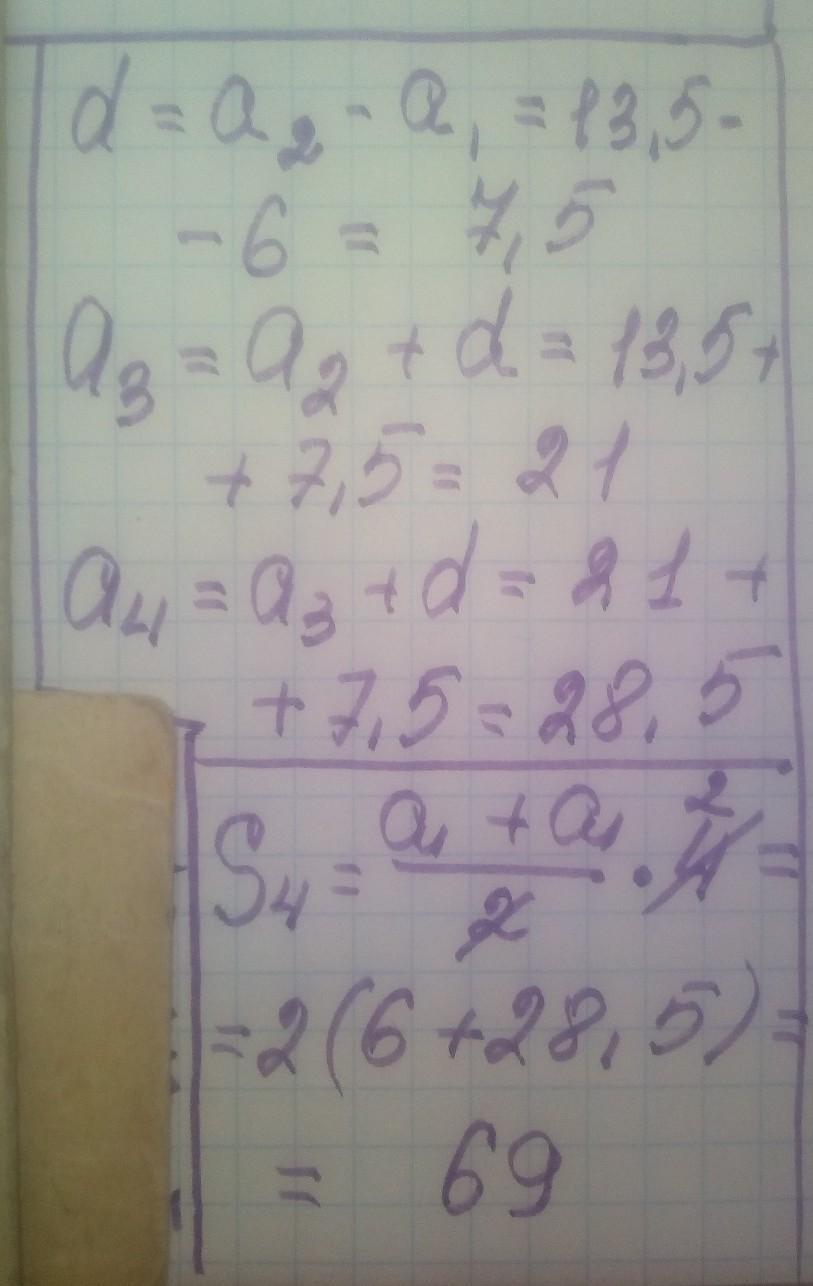 d = a₂ - a₁ = 13,5 -
- 6 = 7,5
a₃ = a₂ + d = 13,5 +
+ 7,5 = 21
a₄ = a₃ + d = 21 +
+ 7,5 = 28,5
S₄ = (a₁ + a₁)/2 · 4 2 =
= 2(6 + 28,5) =
= 69